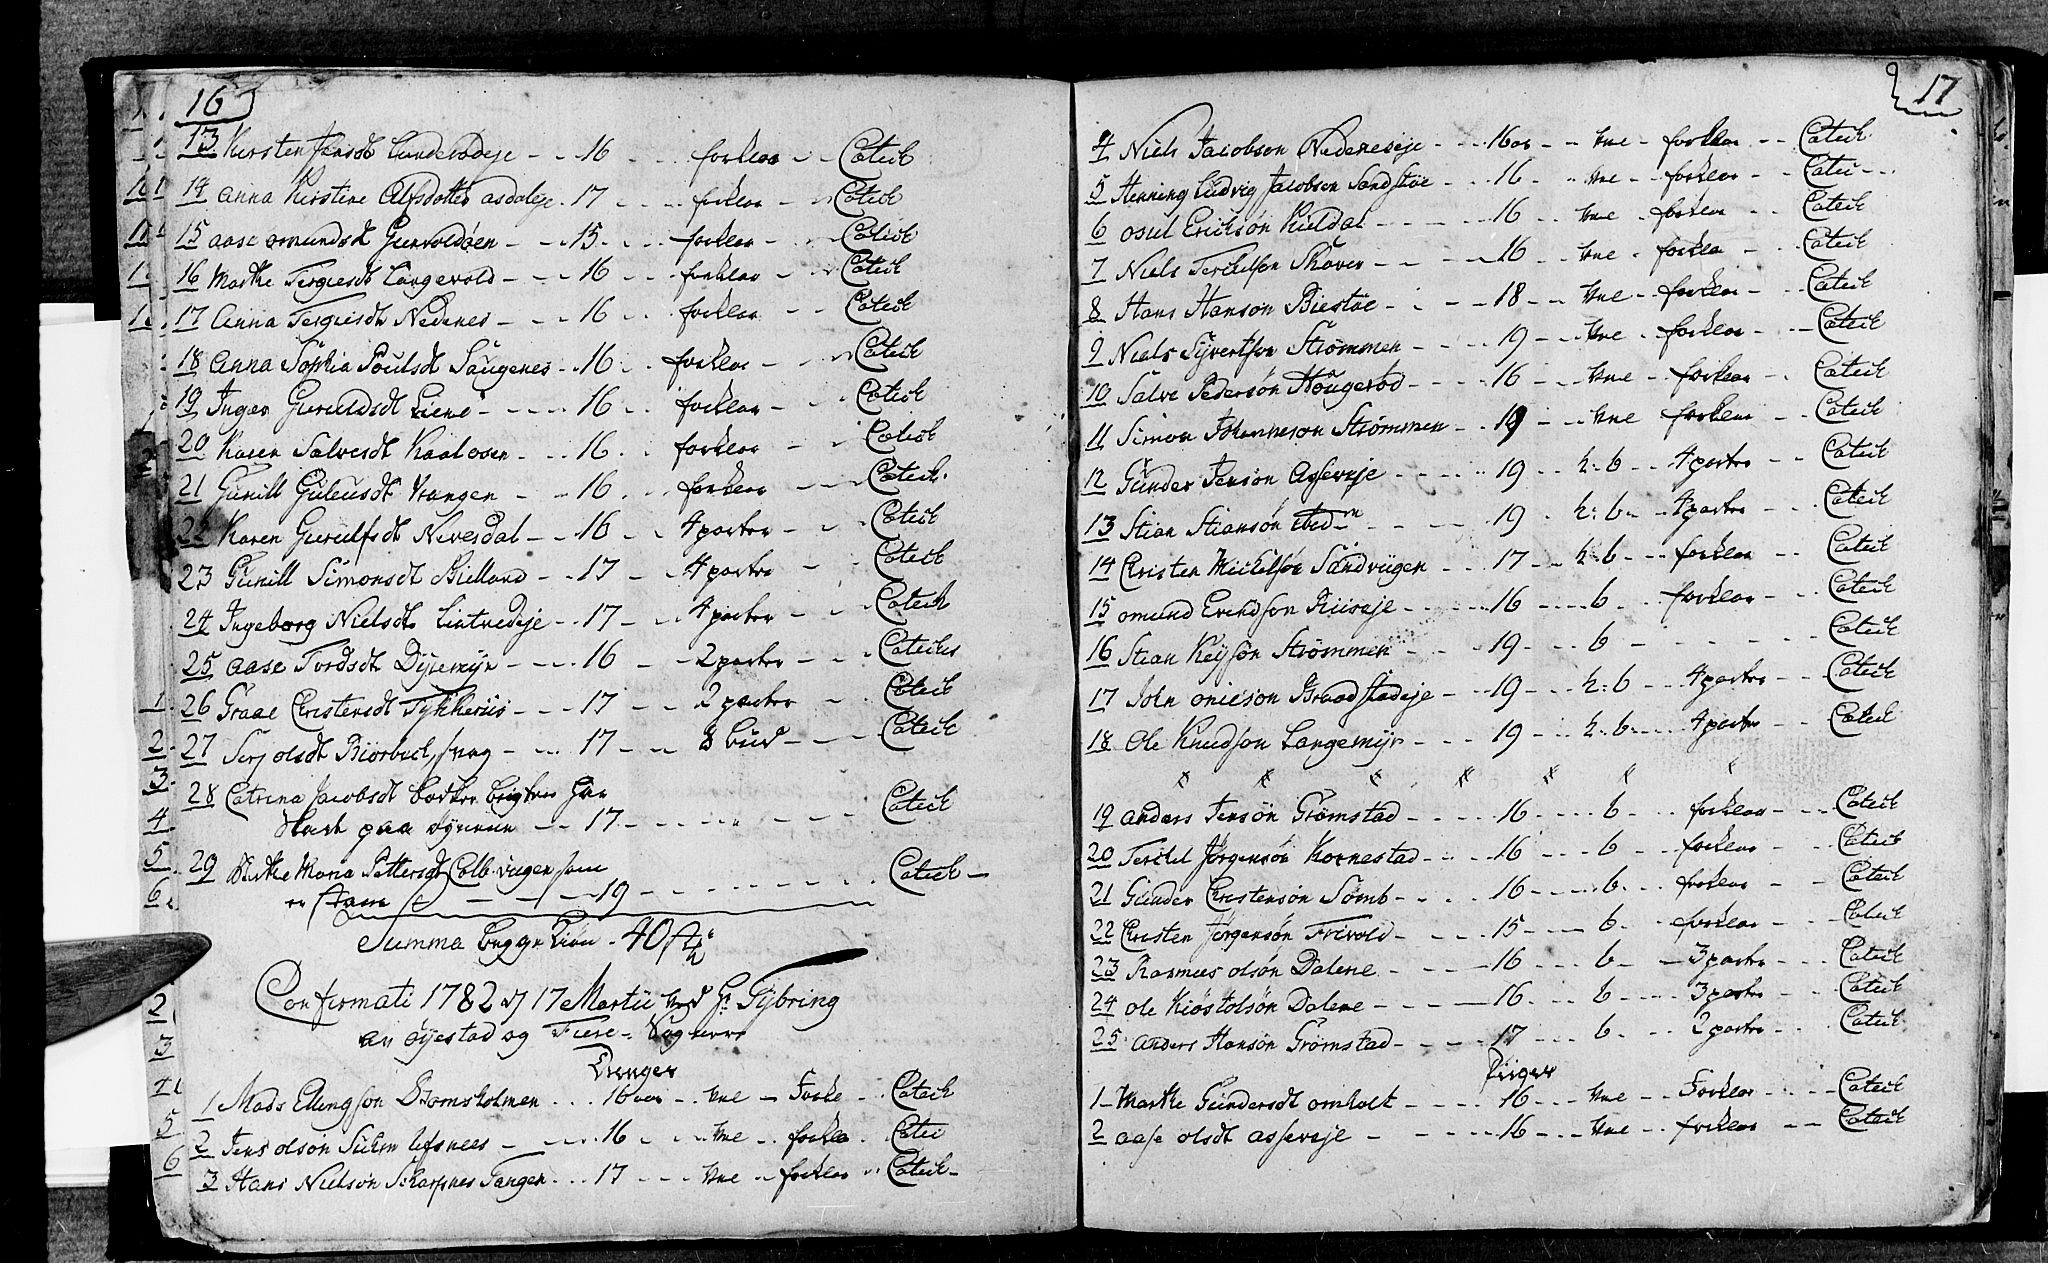 16
13 Kirsten Jensdt Lunderødeje - - 16 - - - forklar - - Catech
14 Anna Kirstine Alfsdotter asdaleje - 17 - - - forklar - - Catech
15 aase omundsdt Gunvoldøen - - - 15 - - - forklar - - Catech
16 Marthe Tergiesdt Langevold - - - 16 - - - forklar - - Catech
17 Anna Tergiesdt Nedenes - - - 16 - - - forklar - - Catech
18 anna Sophia Poulsdt Saugenes - - 16 - - forklar - - Catech
19 Inger Gunuldsdt Liene - - - - 16 - - forklar - - Catech
20 Karen Salvesdt Kaalosen - - - 16 - - forklar - - Catech
21 Gunill Guleusdt Vrangen - - - 16 - - forklar - - Catech
22 Karen Gunulfsdt Nevesdal - - 16 - - 4 parter - - Catech
23 Gunill Simonsdt Bielland - - 17 - - 4 parter - - Catech
24 Ingeborg Nielsdt Lintvedeje - - 17 - - 4 parter - - Catech
25 aase Tordsdt Dyremyr - - - 16 - - 2 parter - - Catech
26 Graae Christensdt Tykkeriis - - - 17 - - 2 parter - - Catech
27 Serj olsdt Biorbech - - 17 - - 8 bud - - Catech
28 Catrina Jacobsdt
Stærk paa øynene - - 17 - - - - - - Catech
29 Marthe Maria Pettersdt Colb-vigen som
er stam - - - 19 - - - - - - Catech -
Summa begge Kiøn - 40 st
Confirmati 1782 d 17 Martii ved Hr Gybring
av øyestad og Fiere - Sognerne
Drenger
1 Mads Ellingson Stamsholmen - - - 16 aar - - vne - Forkl - - Catech
2 Jens olsøn - - - 16 - - - vne - - forkla - - Catec
3 Hans Nielsøn Skarpnes Tangen - - - 17 - - - vne - - forklar - - Catech -
17
4 Niels Jacobsøn Nedeneseje - - - 16 aar - - vne - forklar - - Catech
5 Henning Ludvig Jacobsen Sandstøe - - - 16 - - - vne - - forklar - - Catec - - -
6 osul Ericksøn Kieldal - - - - 16 - - vne - - forklar - - Catech
7 Niels Terchelson Skover - - - - 16 - - vne - forkla - - Catech
8 Hans Hansøn Biestøe - - - - 18 - - vne - - forklar - - Catech
9 Niels Syvertson Strømmen - - - 19 - - vne - - forklar - - Catech
10 Salve Pedersøn Hougerød - - - 16 - - vne - - forklar - - Catech
11 Simon Johannesøn Strømmen - - 19 - - vne - forklar - - Catech
12 Gunder Jensøn Asseveje - - - - 19 - - h: b - - 4 parter - - Catech
13 Stian Stiansøn ibidm - - - - 19 - - h: b - - 4 parter - - Catech
14 Christen Michelsøn Sandvigen - - 17 - - h: b - - forklar - - Catech
15 omund Erichson Riiseje - - - - 16 - - - b - - forklar - - Catech
16 Stian Keyson Strømmen - - - 19 - - b - - - - - - - Catech
17 John Braadstadeje - - 19 - - h: b - - 4 parter - - Catech
18 Ole Knudson Langemyr - - - 19 - - h: b - - - 4 parter - - Catech
19 anders Jensøn Grømstad - - - - - 16 - - - b - - - forklar - - - Catech
20 Terchel Jørgensøn Kornestad - - - 16 - - - b - - forklar - - - Catech
21 Gunder Christensøn Sømb - - - - 16 - - - b - - - forklar - - Catech
22 Christen Jørgensøn Frivold - - - - 15 - - - b - - - forklar - - Catech
23 Rasmus olsøn Dalene - - - - - 16 - - - b - - 3 parter - - Catech
24 ole Kiøstolsøn Dalene - - - - 16 - - - b - - - 3 parter - - Catech
25 anders Hansøn Grømstad - - - - 17 - - - b - - - 2 parter - - - Catech
Piiger
1 - Marthe Gundersdt omholt - - - - - 16 - - - vne - - Forklar - - - - Catech
2 aase olsdt asseveje - - - - - 16 - - - vne - - forklar - - Catech